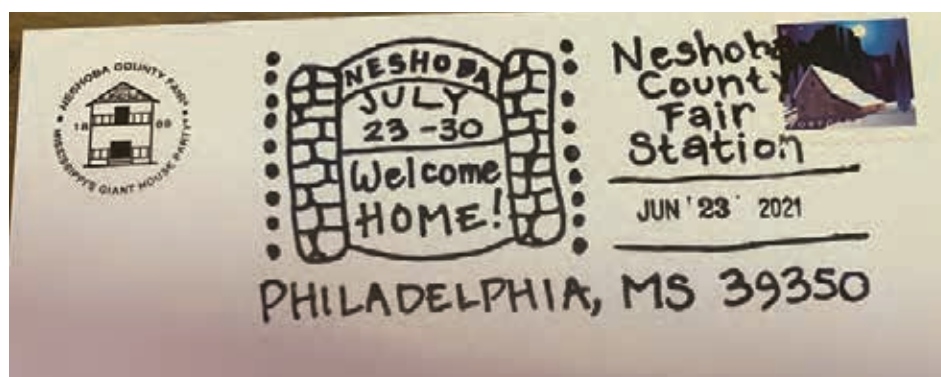 NESHOBA COUNTY FAIR
18 89
MISSISSIPPI'S GIANT HOUSE PARTY
NESHOBA
JULY
23-30
Welcome
HOME!
Neshoba
County
Fair
Station
JUN 23 2021
PHILADELPHIA, MS 39350